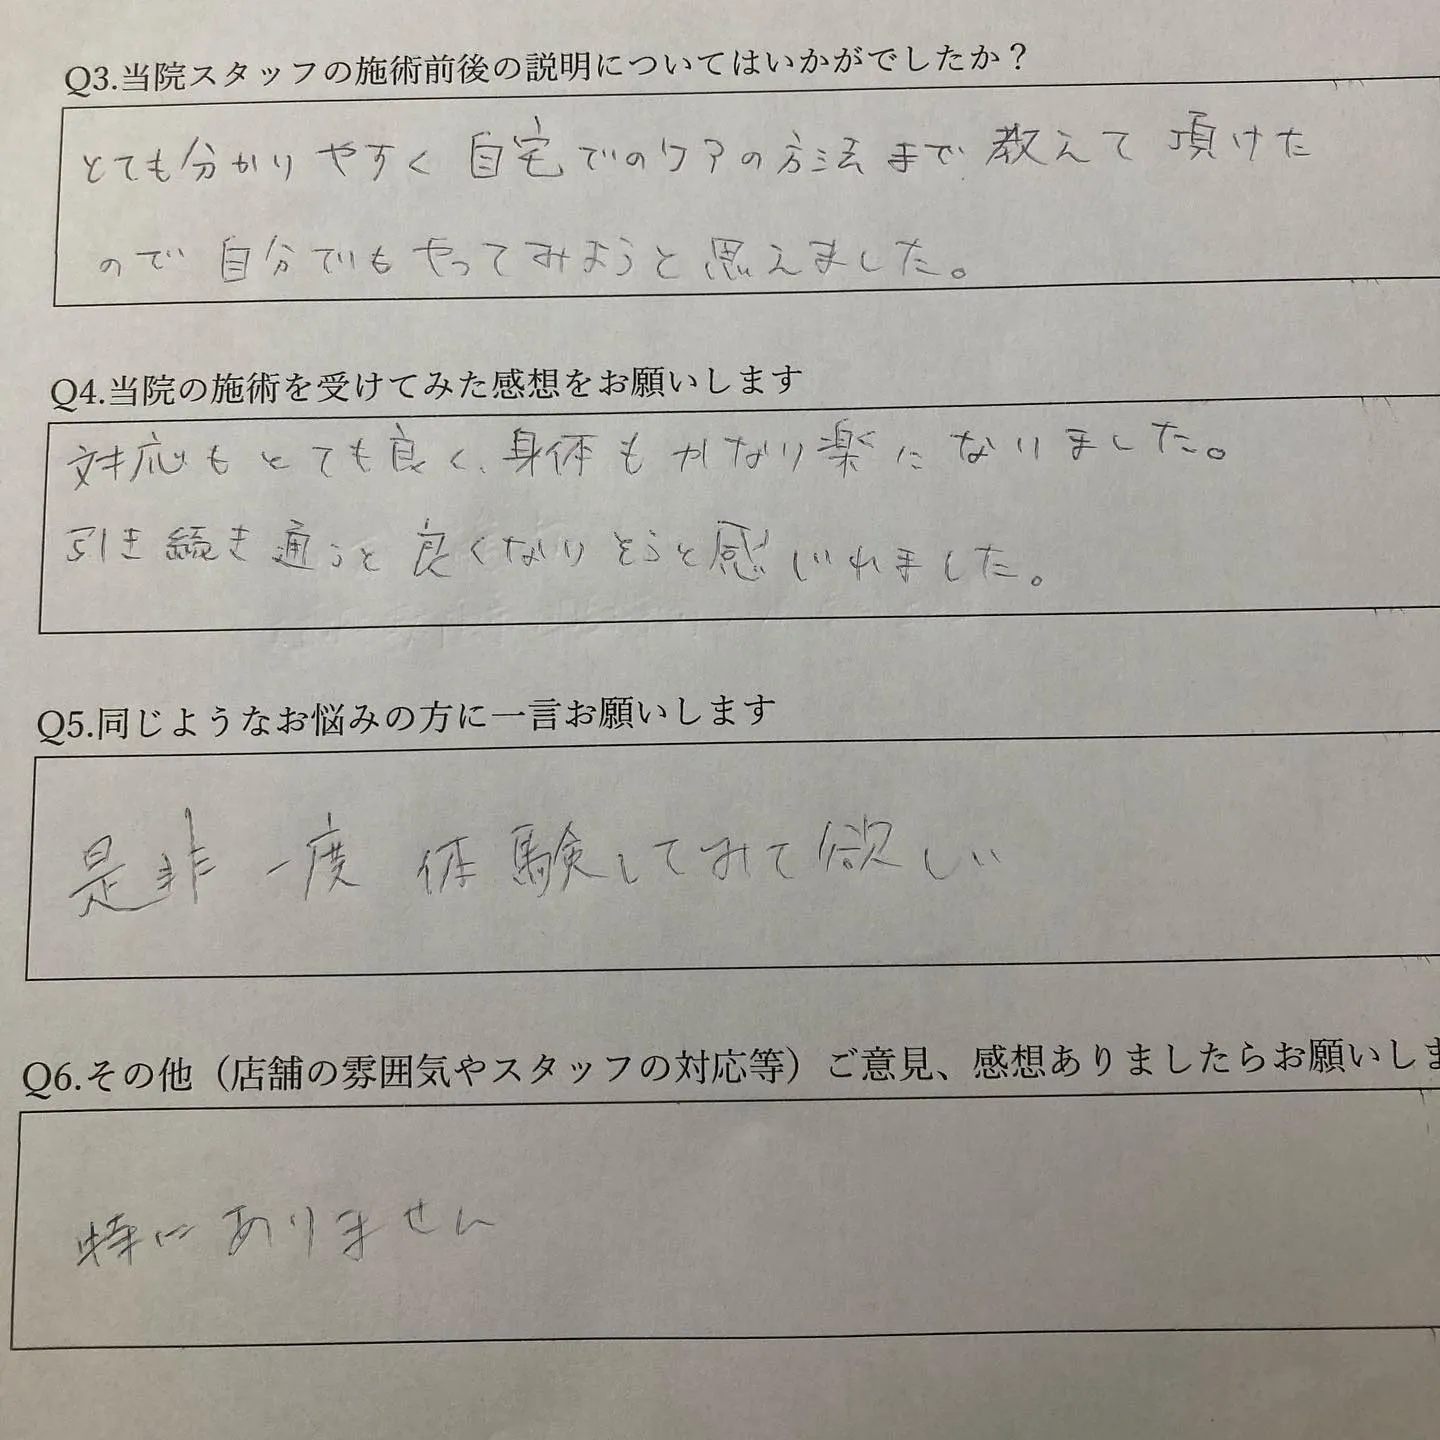 Q3.当院スタッフの施術前後の説明についてはいかがでしたか？
とても分かりやすく自宅でのケアの方法まで教えて頂けた
ので自分でもやってみようと思えました。
Q4.当院の施術を受けてみた感想をお願いします
対応もとても良く、身体もかなり楽になりました。
引き続き通うと良くなりそうと感じれました。
Q5.同じようなお悩みの方に一言お願いします
是非一度体験してみて欲しい
Q6.その他（店舗の雰囲気やスタッフの対応等）ご意見、感想ありましたらお願いしま
特にありません